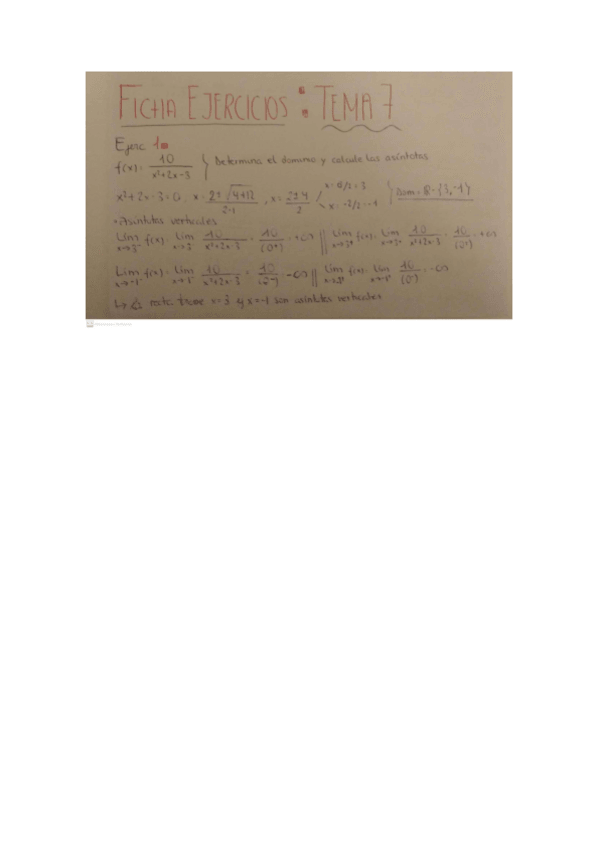 FICHA EJERCICIOS : TEMA 7
Ejerc 1
f(x) = 10 / x²+2x-3 } Determina el dominio y calcule las asíntotas
x²+2x-3=0, x = 2± √4+12 / 2·1, x = 2±4 / 2 x=6/2=3 x=-2/2=-1 } Dom = R-{3,-1}
Asíntotas verticales
Lim x→3⁻ f(x) = Lim x→3⁻ 10 / x²+2x-3 = 10 / (0+) = +∞ || Lim x→3⁺ f(x) = Lim x→3⁺ 10 / x²+2x-3 = 10 / (0+) = +∞
Lim f(x) = Lim 10 / x²+2x-3 = 10 = -∞ || Lim f(x) = Lim 10 = -∞
↳ La recta x=3 y x=-1 son asíntotas verticales